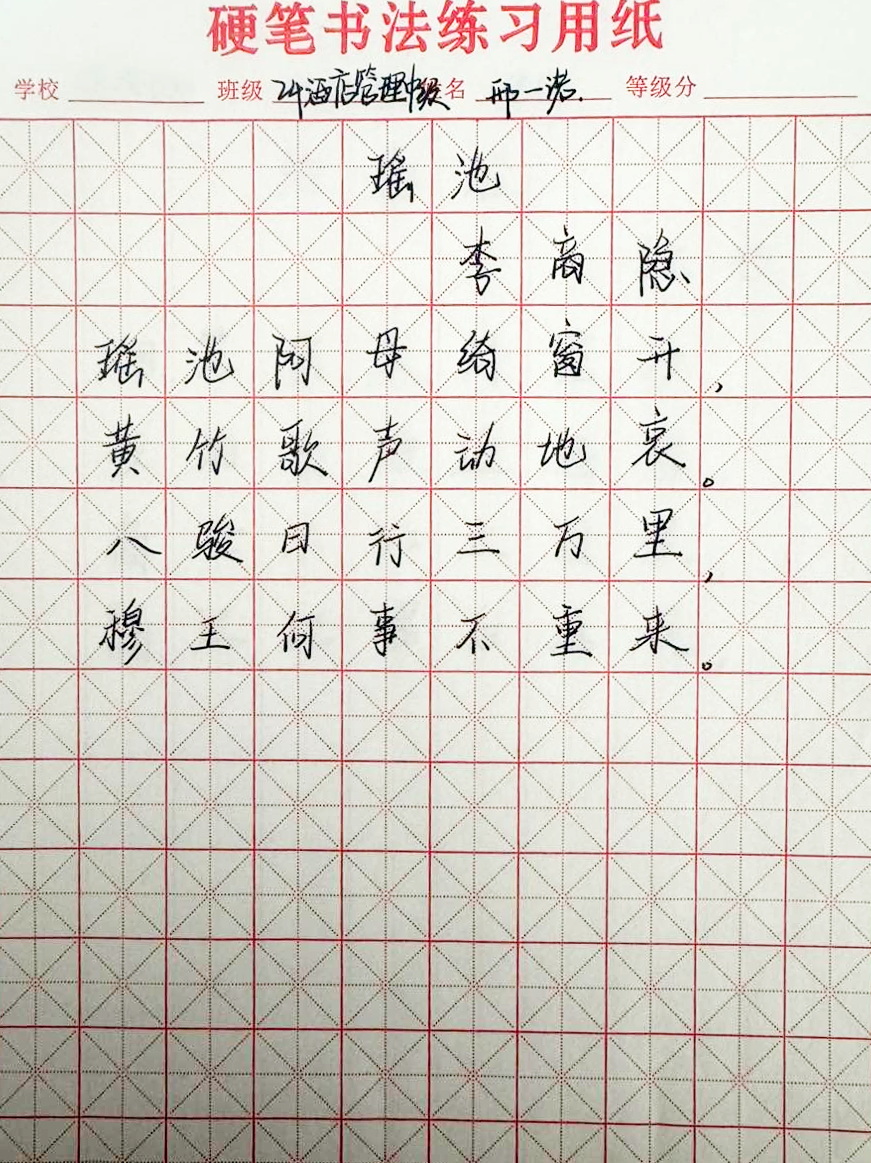 硬笔书法练习用纸
学校 班级 24酒店管理中级 姓名 邢一诺. 等级分
瑶池
李商隐
瑶池阿母绮窗开,
黄竹歌声动地哀。
八骏日行三万里,
穆王何事不重来。